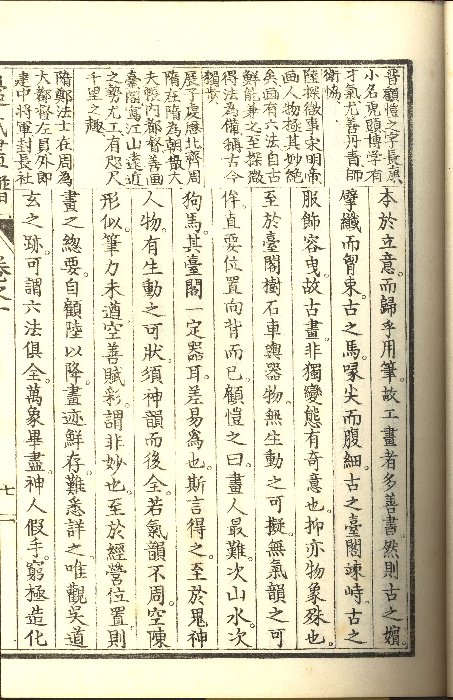 本於立意而歸乎用筆故工畫者多善書然則古之嬪
擘纖而胷束古之馬喙尖而腹細古之臺閣竦峙古之
服飾容曳故古畫非獨變態有奇意也抑亦物象殊也
至於臺閣樹石車輿器物無生動之可擬無氣韻之可
侔直要位置向背而已顧愷之曰畫人最難次山水次
狗馬其臺閣一定器耳差易爲也斯言得之至於鬼神
人物有生動之可狀須神韻而後全若氣韻不周空陳
形似筆力未遒空善賦彩謂非妙也至於經營位置則
畫之總要自顧陸以降畫迹鮮存難悉詳之唯觀吳道
玄之跡可謂六法俱全萬象畢盡神人假手窮極造化
晉顧愷之字長康
小名虎頭博學有
才氣尤善丹青師
衛協
陸探微事宋明帝
畫人物極其妙絕
矣畫有六法自古
鮮能兼之至探微
得法爲備稱古今
獨步
展子虔歷北齊周
隋在隋爲朝散大
夫帳內都督善畫
臺閣寫江山遠近
之勢尤工有咫尺
千里之趣
隋鄭法士在周爲
大都督左員外郎
建中將軍封長社
七